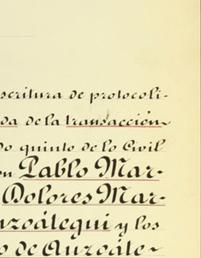 scritura de protocoli-
da de la transacción
do quinto de lo Civil
on Pablo Mar-
Dolores Mar-
nzoátegui y los
o de Anzoáte-